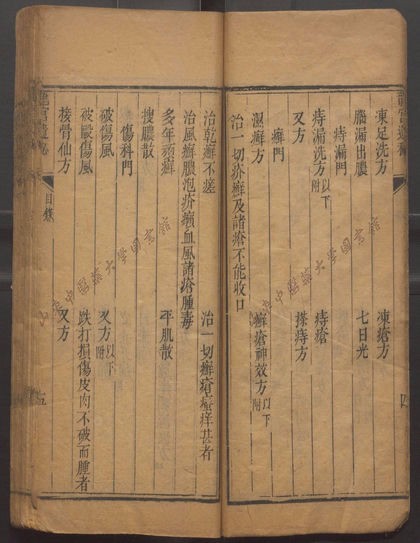 凍足洗方　凍瘡方
腦漏出膿　七日光
痔漏門
痔漏洗方 以下附　痔瘡
又方　搽痔方
癬門
濕癬方　癬瘡神效方 以下附
治一切疥癬及諸瘡不能收口
治乾癬不瘥　治一切癬瘡瘙痒甚者
治風癬膿泡疥癩血風諸瘡腫毒
多年頑癬　平肌散
搜膿散
傷科門
破傷風　又方 以下附
破毆傷風　跌打損傷皮肉不破而腫者
接骨仙方　又方
目錄
五
四